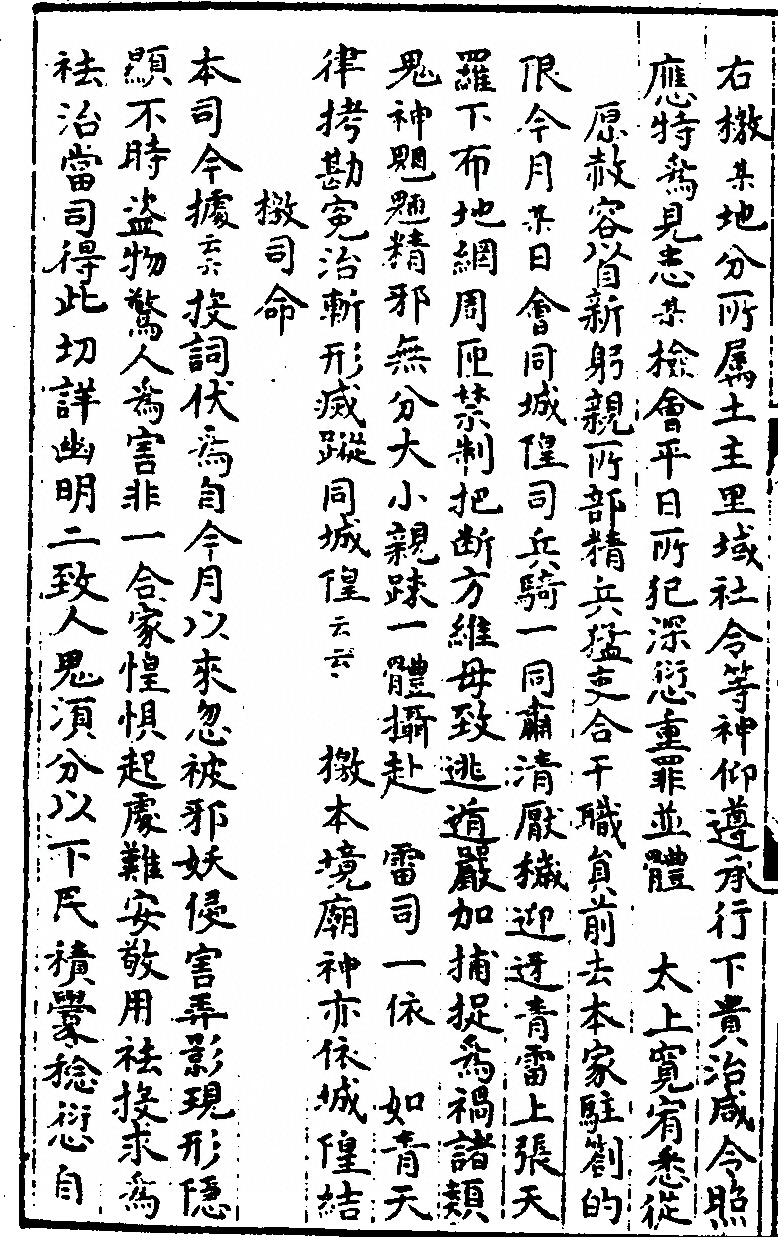 右檄某地分所属土主里域社令等神仰遵承行下貴治咸令照
應特爲見患某檢會平日所犯深愆重罪並體　太上寬宥悉從
原赦容以自新躬親所部精兵猛吏合干職員前去本家駐劄的
佷今月某日會同城隍司兵騎一同肅清厭穢迎迓青雷上張天
羅下布地網周匝禁制把断方維毋致逃遁嚴加捕捉爲禍諸類
鬼神魍魎精邪無分大小親踈一體攝赴　雷司一依　如青天
律拷勘寃治斬形滅蹤同城隍云云　檄本境廟神亦依城隍結
檄司命
本司今據云云投詞伏爲自今月以來忽被邪妖侵害弄影現形隱
顯不時盗物驚人爲害非一合家惶惧起處難安敬用祛投求爲
祛治當司得此切詳幽明二致人鬼湏分以下民積釁稔愆自